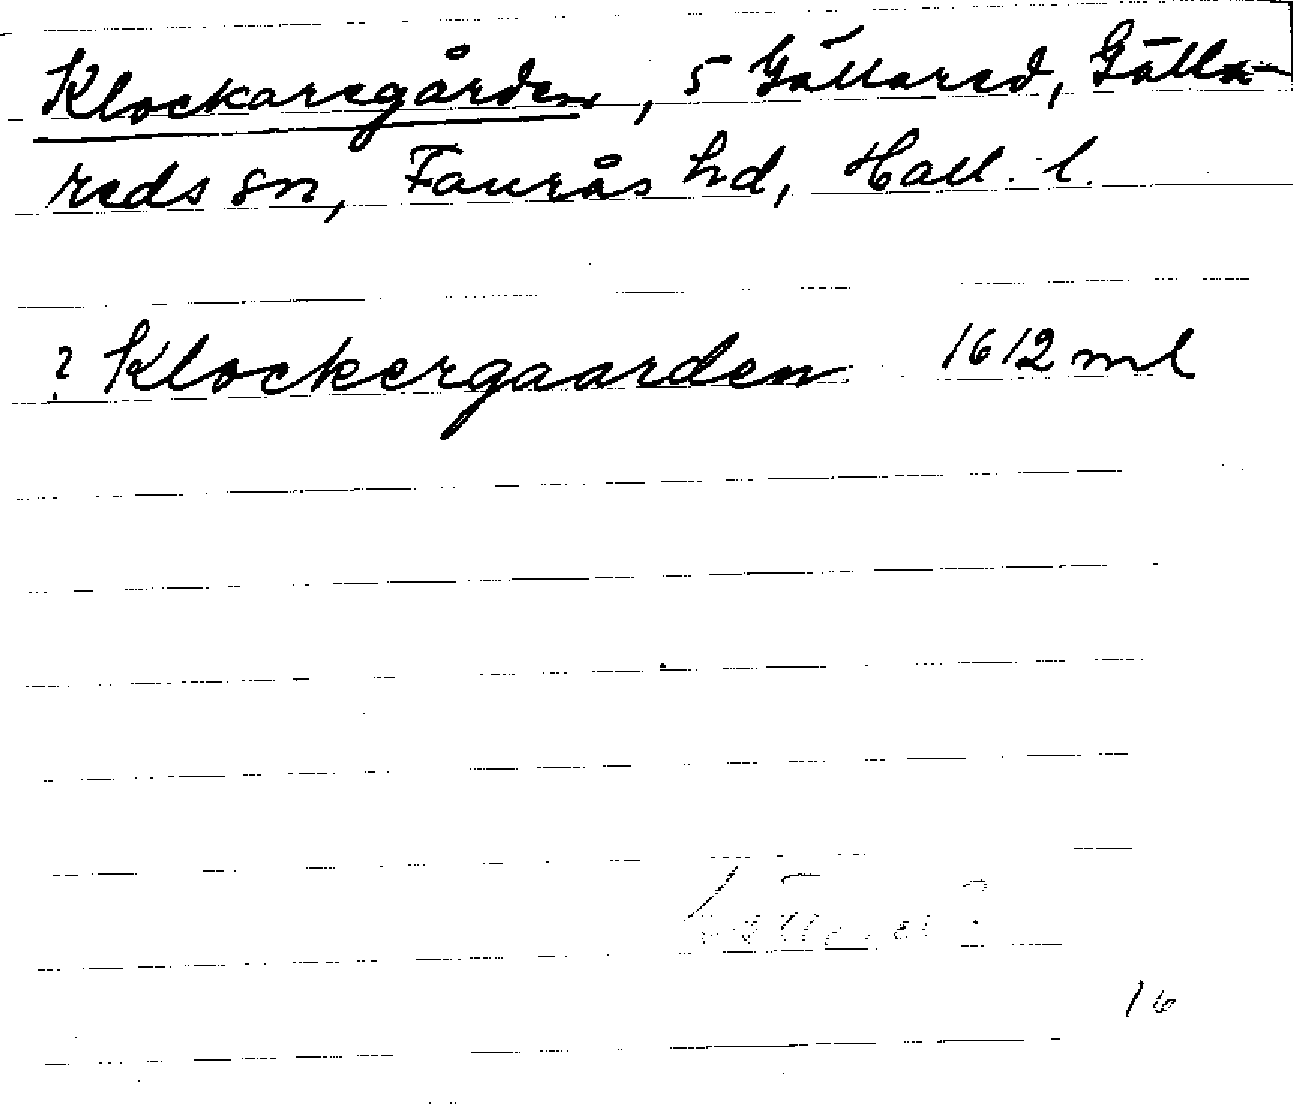 Klockaregården, 5 Gällared, Gälla-
reds sn, Faurås hd, Hall. l.
? Klockergaarden 1612 ml
16